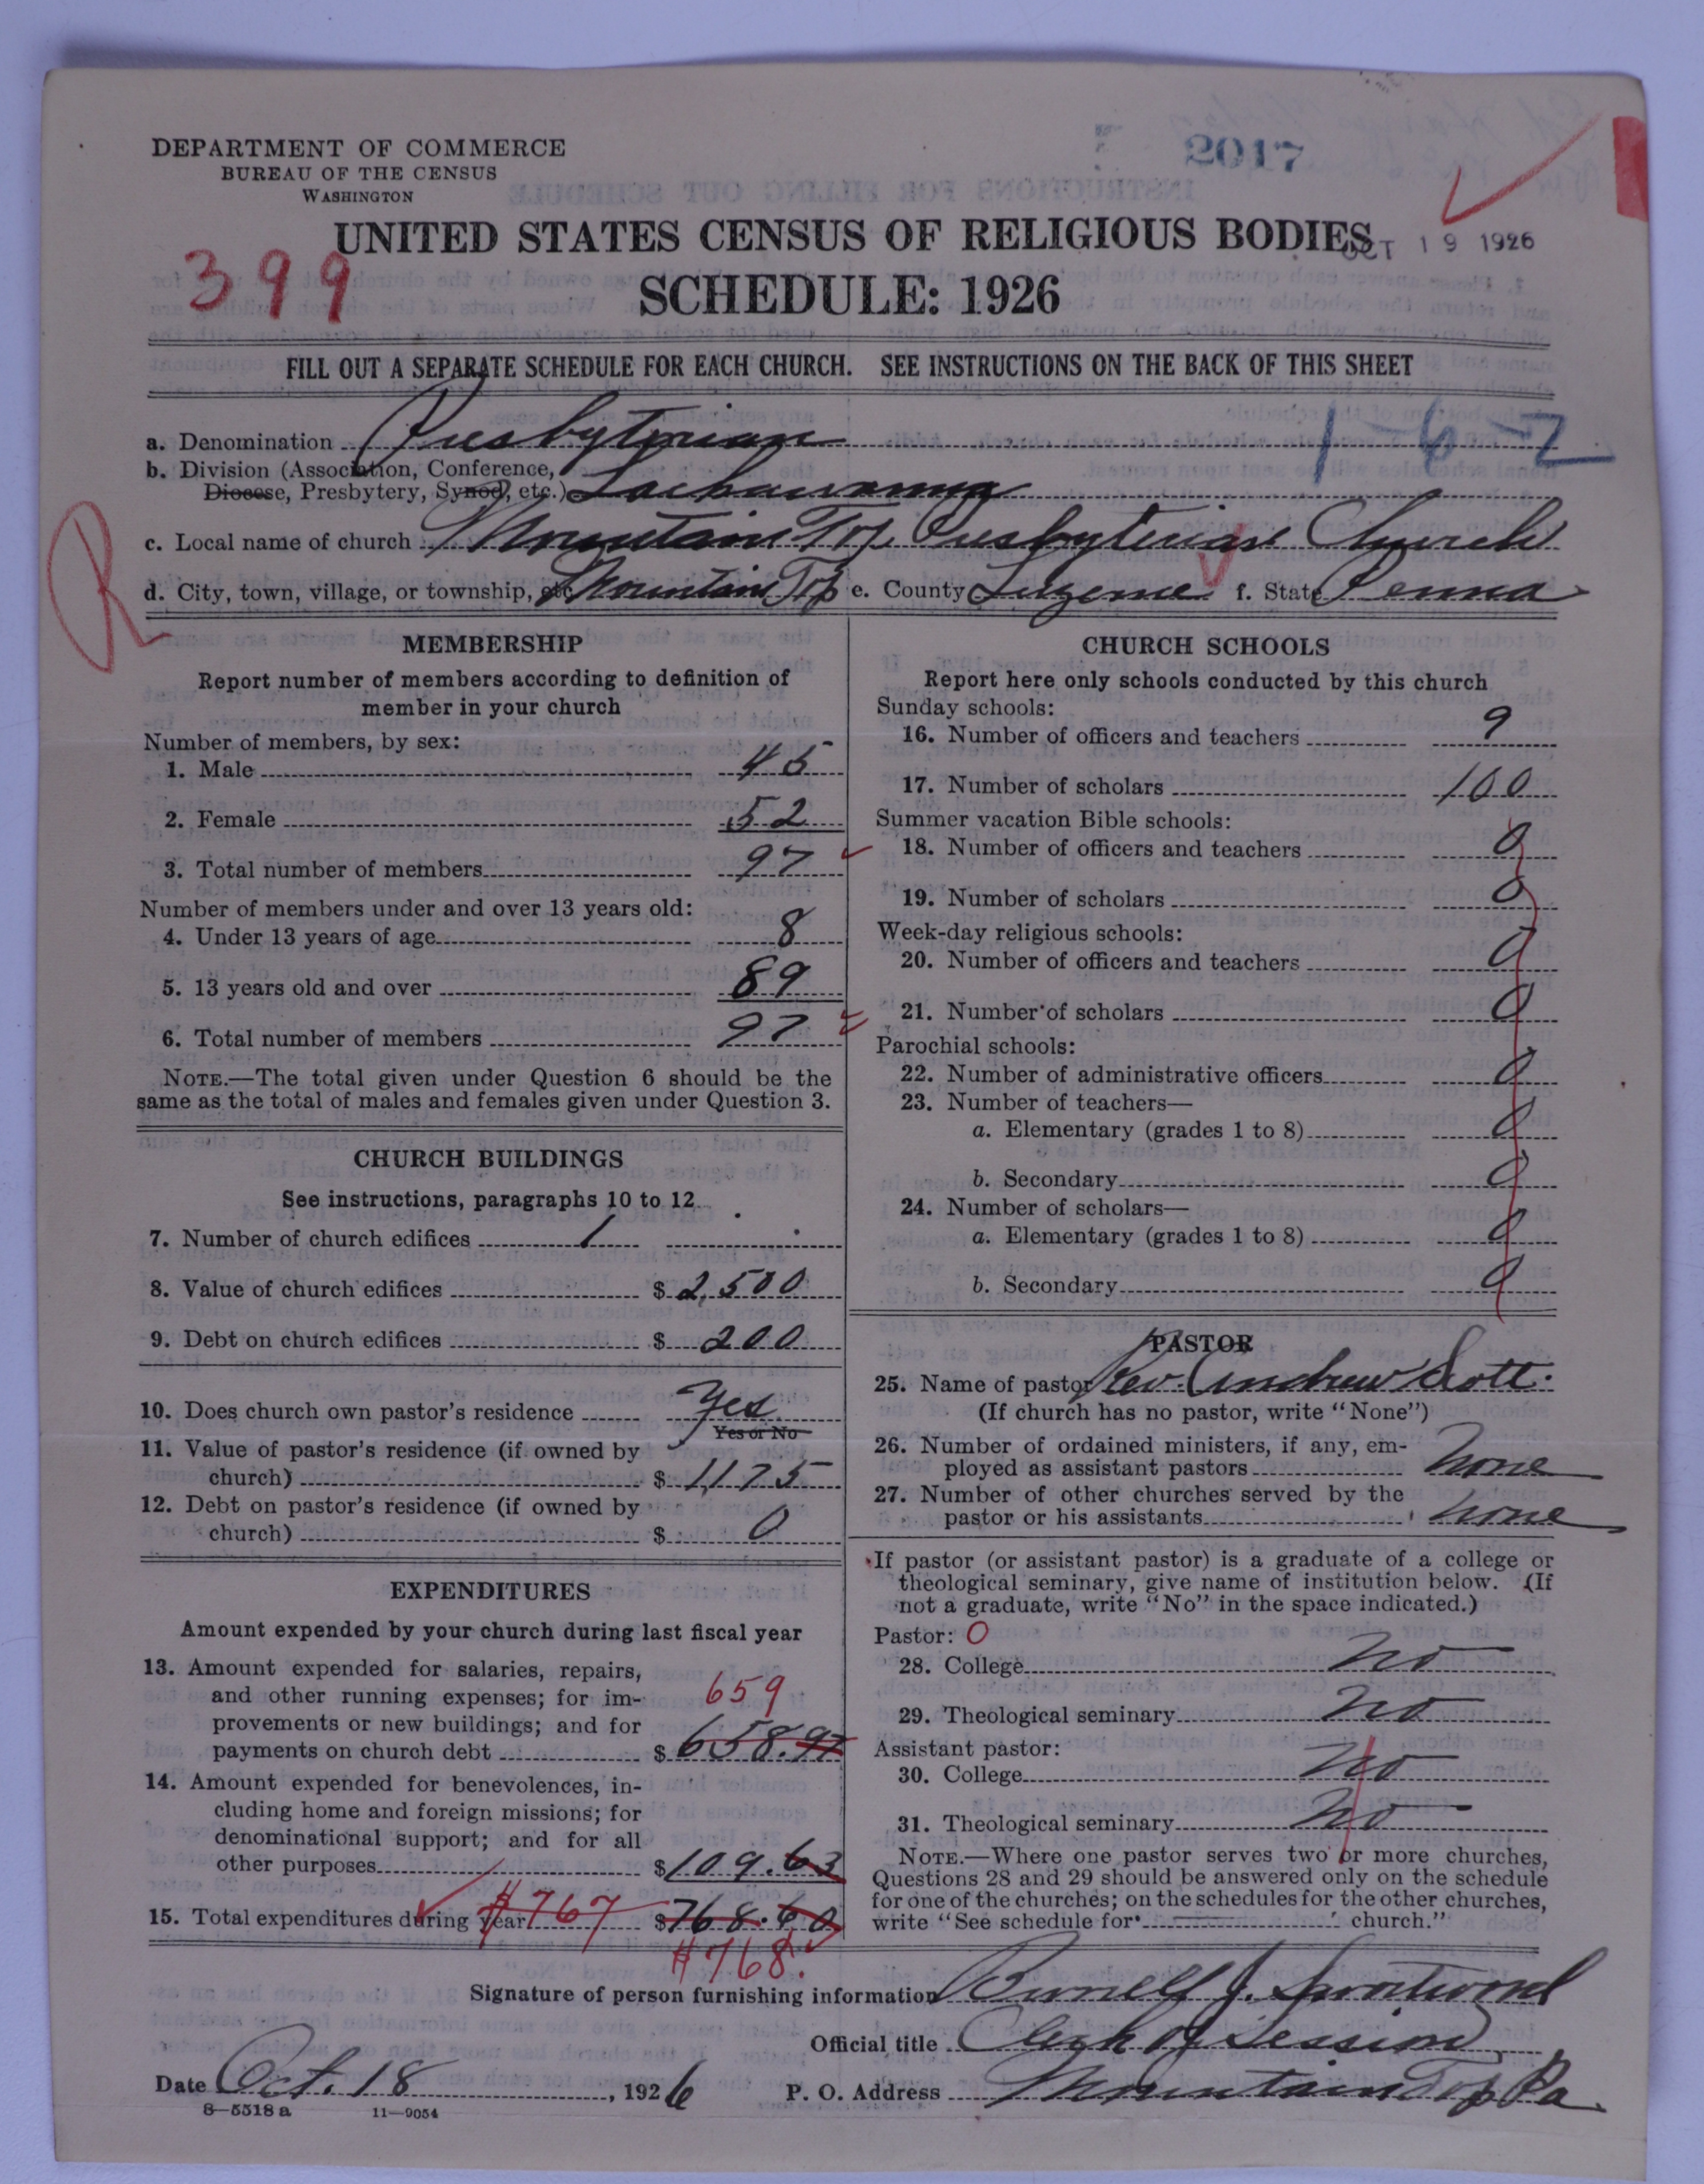 2017
DEPARTMENT OF COMMERCE
BUREAU OF THE CENSUS
WASHINGTON
UNITED STATES CENSUS OF RELIGIOUS BODIES
OCT 19 1926
399
SCHEDULE: 1926
FILL OUT A SEPARATE SCHEDULE FOR EACH CHURCH. SEE INSTRUCTIONS ON THE BACK OF THIS SHEET
a. Denomination Presbyterian 1-6-2
b. Division (Association, Conference,
Diocese, Presbytery, Synod, etc.) Lackawanna
R
c. Local name of church Mountain Top Presbyterian Church
d. City, town, village, or township, etc. Mountain Top e. County Luzerne f. State Penna
MEMBERSHIP
Report number of members according to definition of
member in your church
Number of members, by sex:
1. Male 45
2. Female 52
3. Total number of members 97
Number of members under and over 13 years old:
4. Under 13 years of age 8
5. 13 years old and over 89
6. Total number of members 97
NOTE.—The total given under Question 6 should be the
same as the total of males and females given under Question 3.
CHURCH BUILDINGS
See instructions, paragraphs 10 to 12
7. Number of church edifices 1
8. Value of church edifices $ 2,500
9. Debt on church edifices $ 200
10. Does church own pastor's residence Yes
Yes or No
11. Value of pastor's residence (if owned by
church) $ 1,175
12. Debt on pastor's residence (if owned by
church) $ 0
EXPENDITURES
Amount expended by your church during last fiscal year
13. Amount expended for salaries, repairs,
and other running expenses; for im- 659
provements or new buildings; and for
payments on church debt $ 658.97
14. Amount expended for benevolences, in-
cluding home and foreign missions; for
denominational support; and for all
other purposes $ 109.63
15. Total expenditures during year $767 $768.60
$768.
CHURCH SCHOOLS
Report here only schools conducted by this church
Sunday schools:
16. Number of officers and teachers 9
17. Number of scholars 100
Summer vacation Bible schools:
18. Number of officers and teachers 0
19. Number of scholars 0
Week-day religious schools:
20. Number of officers and teachers 0
21. Number of scholars 0
Parochial schools:
22. Number of administrative officers 0
23. Number of teachers—
a. Elementary (grades 1 to 8) 0
b. Secondary 0
24. Number of scholars—
a. Elementary (grades 1 to 8) 0
b. Secondary 0
PASTOR
25. Name of pastor Rev. Andrew Scott.
(If church has no pastor, write "None")
26. Number of ordained ministers, if any, em-
ployed as assistant pastors None
27. Number of other churches served by the
pastor or his assistants none
If pastor (or assistant pastor) is a graduate of a college or
theological seminary, give name of institution below. (If
not a graduate, write "No" in the space indicated.)
Pastor: O
28. College No
29. Theological seminary No
Assistant pastor:
30. College No
31. Theological seminary No
NOTE.—Where one pastor serves two or more churches,
Questions 28 and 29 should be answered only on the schedule
for one of the churches; on the schedules for the other churches,
write "See schedule for church."
Signature of person furnishing information J.
Official title Clerk of Session
Date Oct. 18, 1926 P. O. Address Mountain Top Pa.
8—5518 a 11—9054